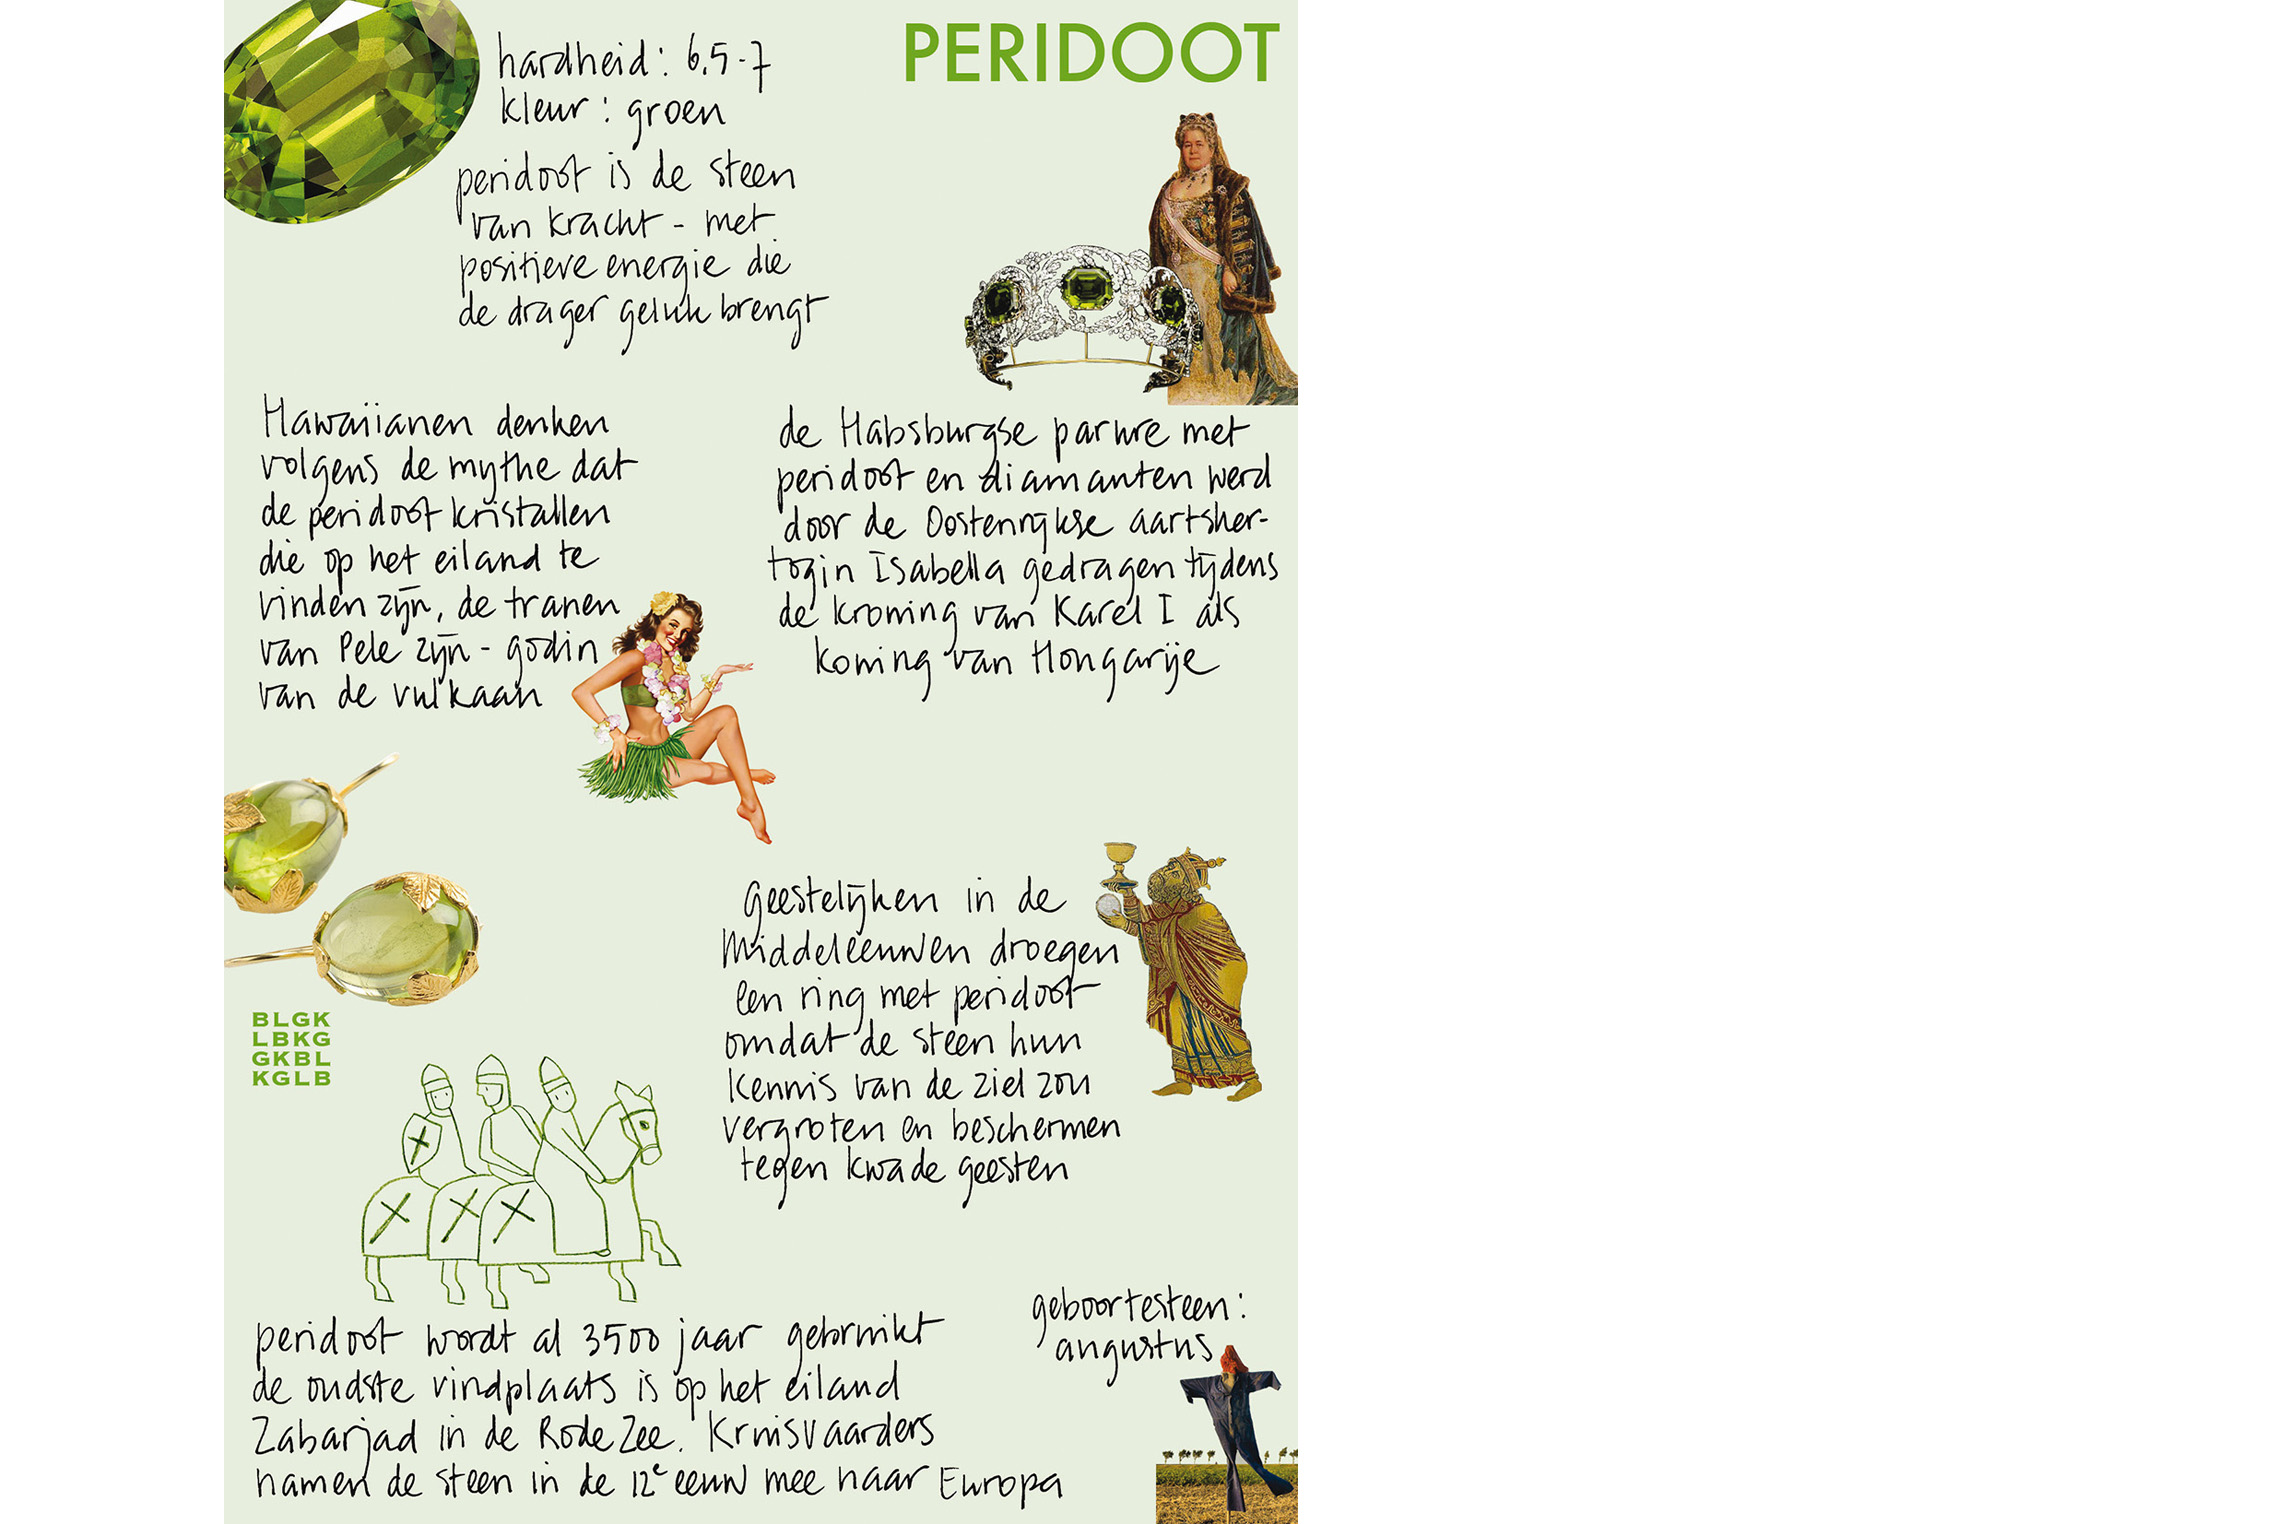 PERIDOOT
hardheid: 6.5-7
kleur: groen
peridoot is de steen
van kracht - met
positieve energie die
de drager geluk brengt
Hawaiianen denken
volgens de mythe dat
de peridoot kristallen
die op het eiland te
vinden zijn, de tranen
van Pele zijn - godin
van de vulkaan
de Habsburgse parure met
peridoot en diamanten werd
door de Oostenrijkse aartsher-
togin Isabella gedragen tijdens
de kroning van Karel I als
koning van Hongarije
geestelijken in de
Middeleeuwen droegen
een ring met peridoot
omdat de steen hun
kennis van de ziel zou
vergroten en beschermen
tegen kwade geesten
BLGK
LBKG
GKBL
KGLB
peridoot wordt al 3500 jaar gebruikt
de oudste vindplaats is op het eiland
Zabarjad in de Rode Zee. Kruisvaarders
namen de steen in de 12e eeuw mee naar Europa
geboortesteen:
augustus